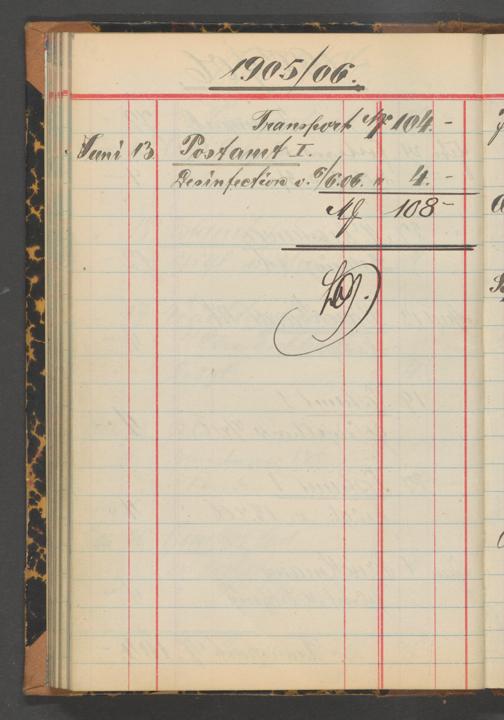 1905/06.
Transport M 104.-
Juni 13. Postamt I.
Desinfection v. 9/6.06. " 4.-
M 108-